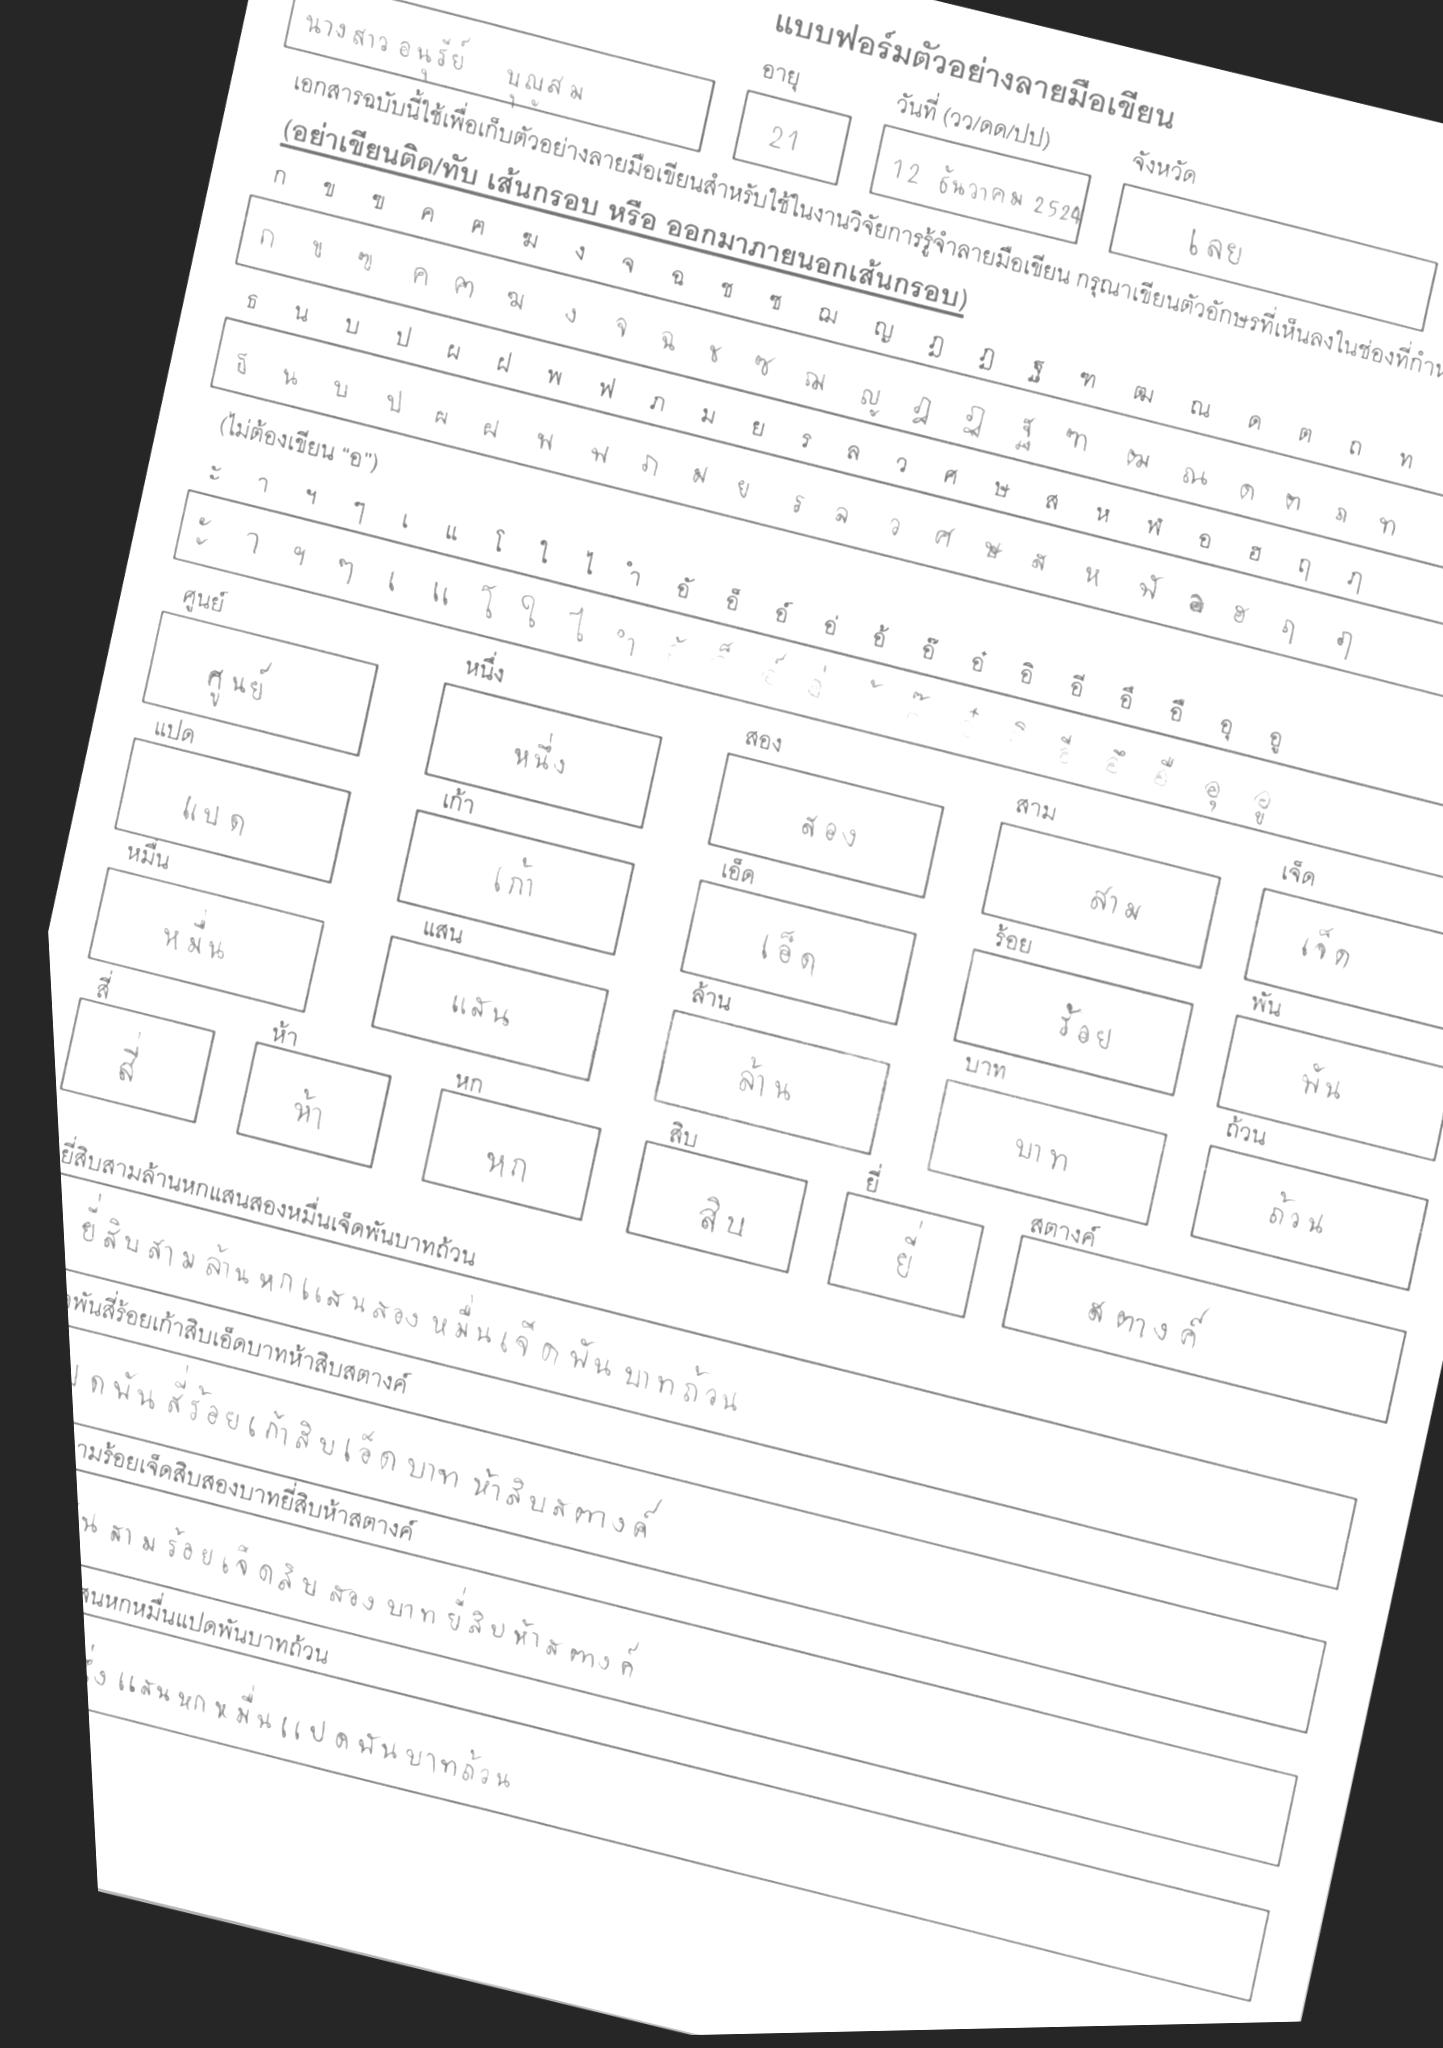 แบบฟอร์มตัวอย่างลายมือเขียน
นางสาวอนุรีย์ บุญสม
อายุ
21
วันที่ (วว/ดด/ปป)
12 ธันวาคม 2524
จังหวัด
เลย
เอกสารฉบับนี้ใช้เพื่อเก็บตัวอย่างลายมือเขียนสำหรับใช้ในงานวิจัยการรู้จำลายมือเขียน กรุณาเขียนตัวอักษรที่เห็นลงในช่องที่กำ
(อย่าเขียนติด/ทับ เส้นกรอบ หรือ ออกมาภายนอกเส้นกรอบ)
ก ข ฃ ค ฅ ฆ ง จ ฉ ช ซ ฌ ญ ฎ ฏ ฐ ฑ ฒ ณ ด ต ถ ท
ก ข ฃ ค ฅ ฆ ง จ ฉ ช ซ ฌ ญ ฎ ฏ ฐ ฑ ฒ ณ ด ต ถ ท
ธ น บ ป ผ ฝ พ ฟ ภ ม ย ร ล ว ศ ษ ส ห ฬ อ ฮ ฤ ฦ
ธ น บ ป ผ ฝ พ ฟ ภ ม ย ร ล ว ศ ษ ส ห ฬ อ ฮ ฤ ฦ
(ไม่ต้องเขียน “อ”)
ะ า ฯ ๆ เ แ โ ใ ไ ำ อั อ็ อ์ อ่ อ้ อ๊ อ๋ อิ อี อึ อื อุ อู
ะ า ฯ ๆ เ แ โ ใ ไ ำ
ศูนย์ หนึ่ง สอง สาม เจ็ด
ศูนย์ หนึ่ง สอง สาม เจ็ด
แปด เก้า เอ็ด ร้อย พัน
แปด เก้า เอ็ด ร้อย พัน
หมื่น แสน ล้าน บาท ถ้วน
หมื่น แสน ล้าน บาท ถ้วน
สี่ ห้า หก สิบ ยี่ สตางค์
สี่ ห้า หก สิบ ยี่ สตางค์
ยี่สิบสามล้านหกแสนสองหมื่นเจ็ดพันบาทถ้วน
ยี่สิบสามล้านหกแสนสองหมื่นเจ็ดพันบาทถ้วน
พันสี่ร้อยเก้าสิบเอ็ดบาทห้าสิบสตางค์
ปดพันสี่ร้อยเก้าสิบเอ็ดบาทห้าสิบสตางค์
ามร้อยเจ็ดสิบสองบาทยี่สิบห้าสตางค์
นสามร้อยเจ็ดสิบสองบาทยี่สิบห้าสตางค์
สนหกหมื่นแปดพันบาทถ้วน
ึ่งแสนหกหมื่นแปดพันบาทถ้วน